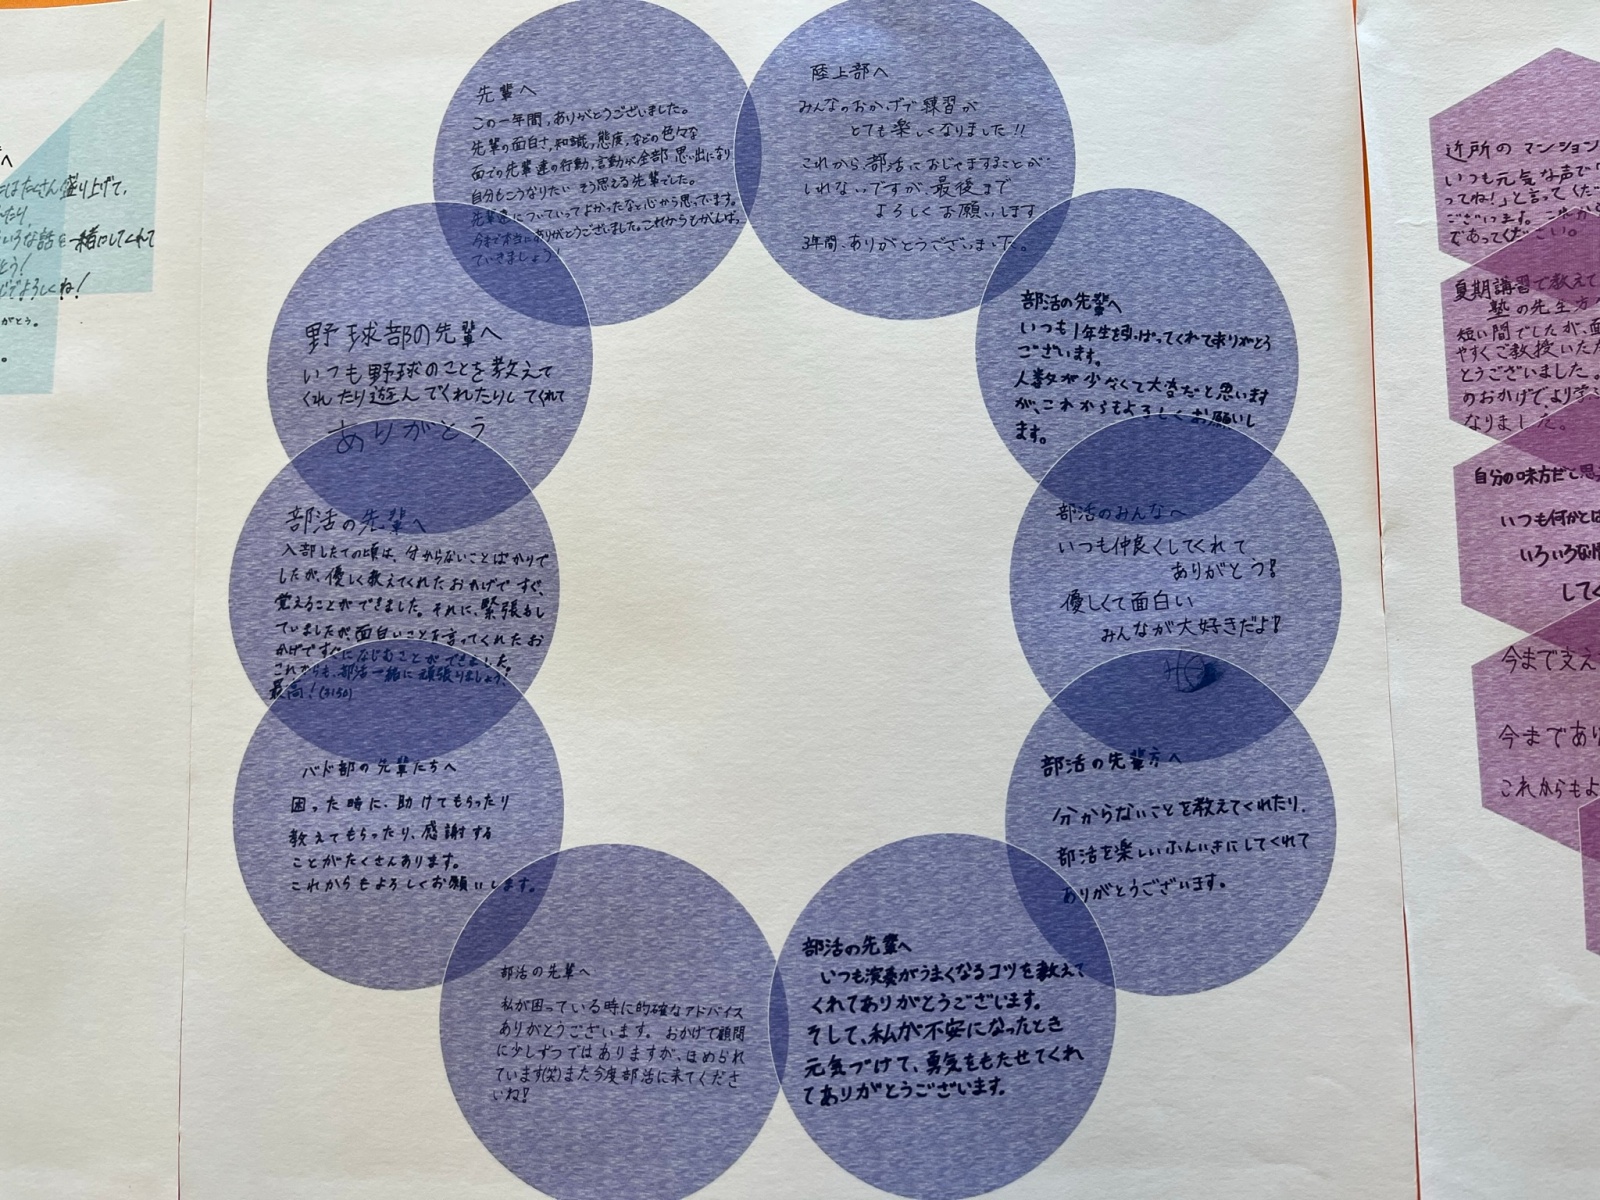 はたくさん盛り上げて、
いろな話を一緒にしてくれて
とう!
じでよろしくね!
がとう。
先輩へ
この一年間、ありがとうございました。
先輩の面白さ、知識、態度、などの色々な
面での先輩達の行動、言動が全部思い出になり
自分もこうなりたい そう思える先輩でした。
先輩達についていってよかったなと心から思っています。
今まで本当にありがとうございました。これからもがんばっ
ていきましょう!
陸上部へ
みんなのおかげで練習が
とても楽しくなりました!!
これから、部活におじゃますることが
しれないですが、最後まで
よろしくお願いします
3年間、ありがとうございました。
野球部の先輩へ
いつも野球のことを教えて
くれたり遊んでくれたりしてくれて
ありがとう
部活の先輩へ
いつも1年生を引っぱってくれてありがとう
ございます。
人数が少なくて大変だと思います
が、これからもよろしくお願いし
ます。
部活の先輩へ
入部したての頃は、分からないことばかりで
したが、優しく教えてくれたおかげですぐ、
覚えることができました。それに、緊張もし
ていましたが、面白いことを言ってくれたお
かげですぐになじむことができました。
これからも、部活一緒に頑張りましょう。
最高!(3150)
部活のみんなへ
いつも仲良くしてくれて
ありがとう!
優しくて面白い
みんなが大好きだよ!
バド部の先輩たちへ
困った時に、助けてもらったり
教えてもらったり、感謝する
ことがたくさんあります。
これからもよろしくお願いします。
部活の先輩方へ
分からないことを教えてくれたり、
部活を楽しいふんいきにしてくれて
ありがとうございます。
部活の先輩へ
私が困っている時に的確なアドバイス
ありがとうございます。おかげで顧問
に少しずつではありますが、ほめられ
ています(笑)また今度部活に来てくださ
いね!
部活の先輩へ
いつも演奏がうまくなるコツを教えて
くれてありがとうございます。
そして、私が不安になったとき
元気づけて、勇気をもたせてくれ
てありがとうございます。
近所のマンション
いつも元気な声で
ってね!」と言ってくだ
ございます。これから
であってください。
夏期講習で教えて
塾の先生方
短い間でしたが、面
やすくご教授いただ
とうございました。
のおかげで、より学
なりました。
自分の味方だと思
いつも何かとは
いろいろな
してく
今まで支え
今まであり
これからもよ